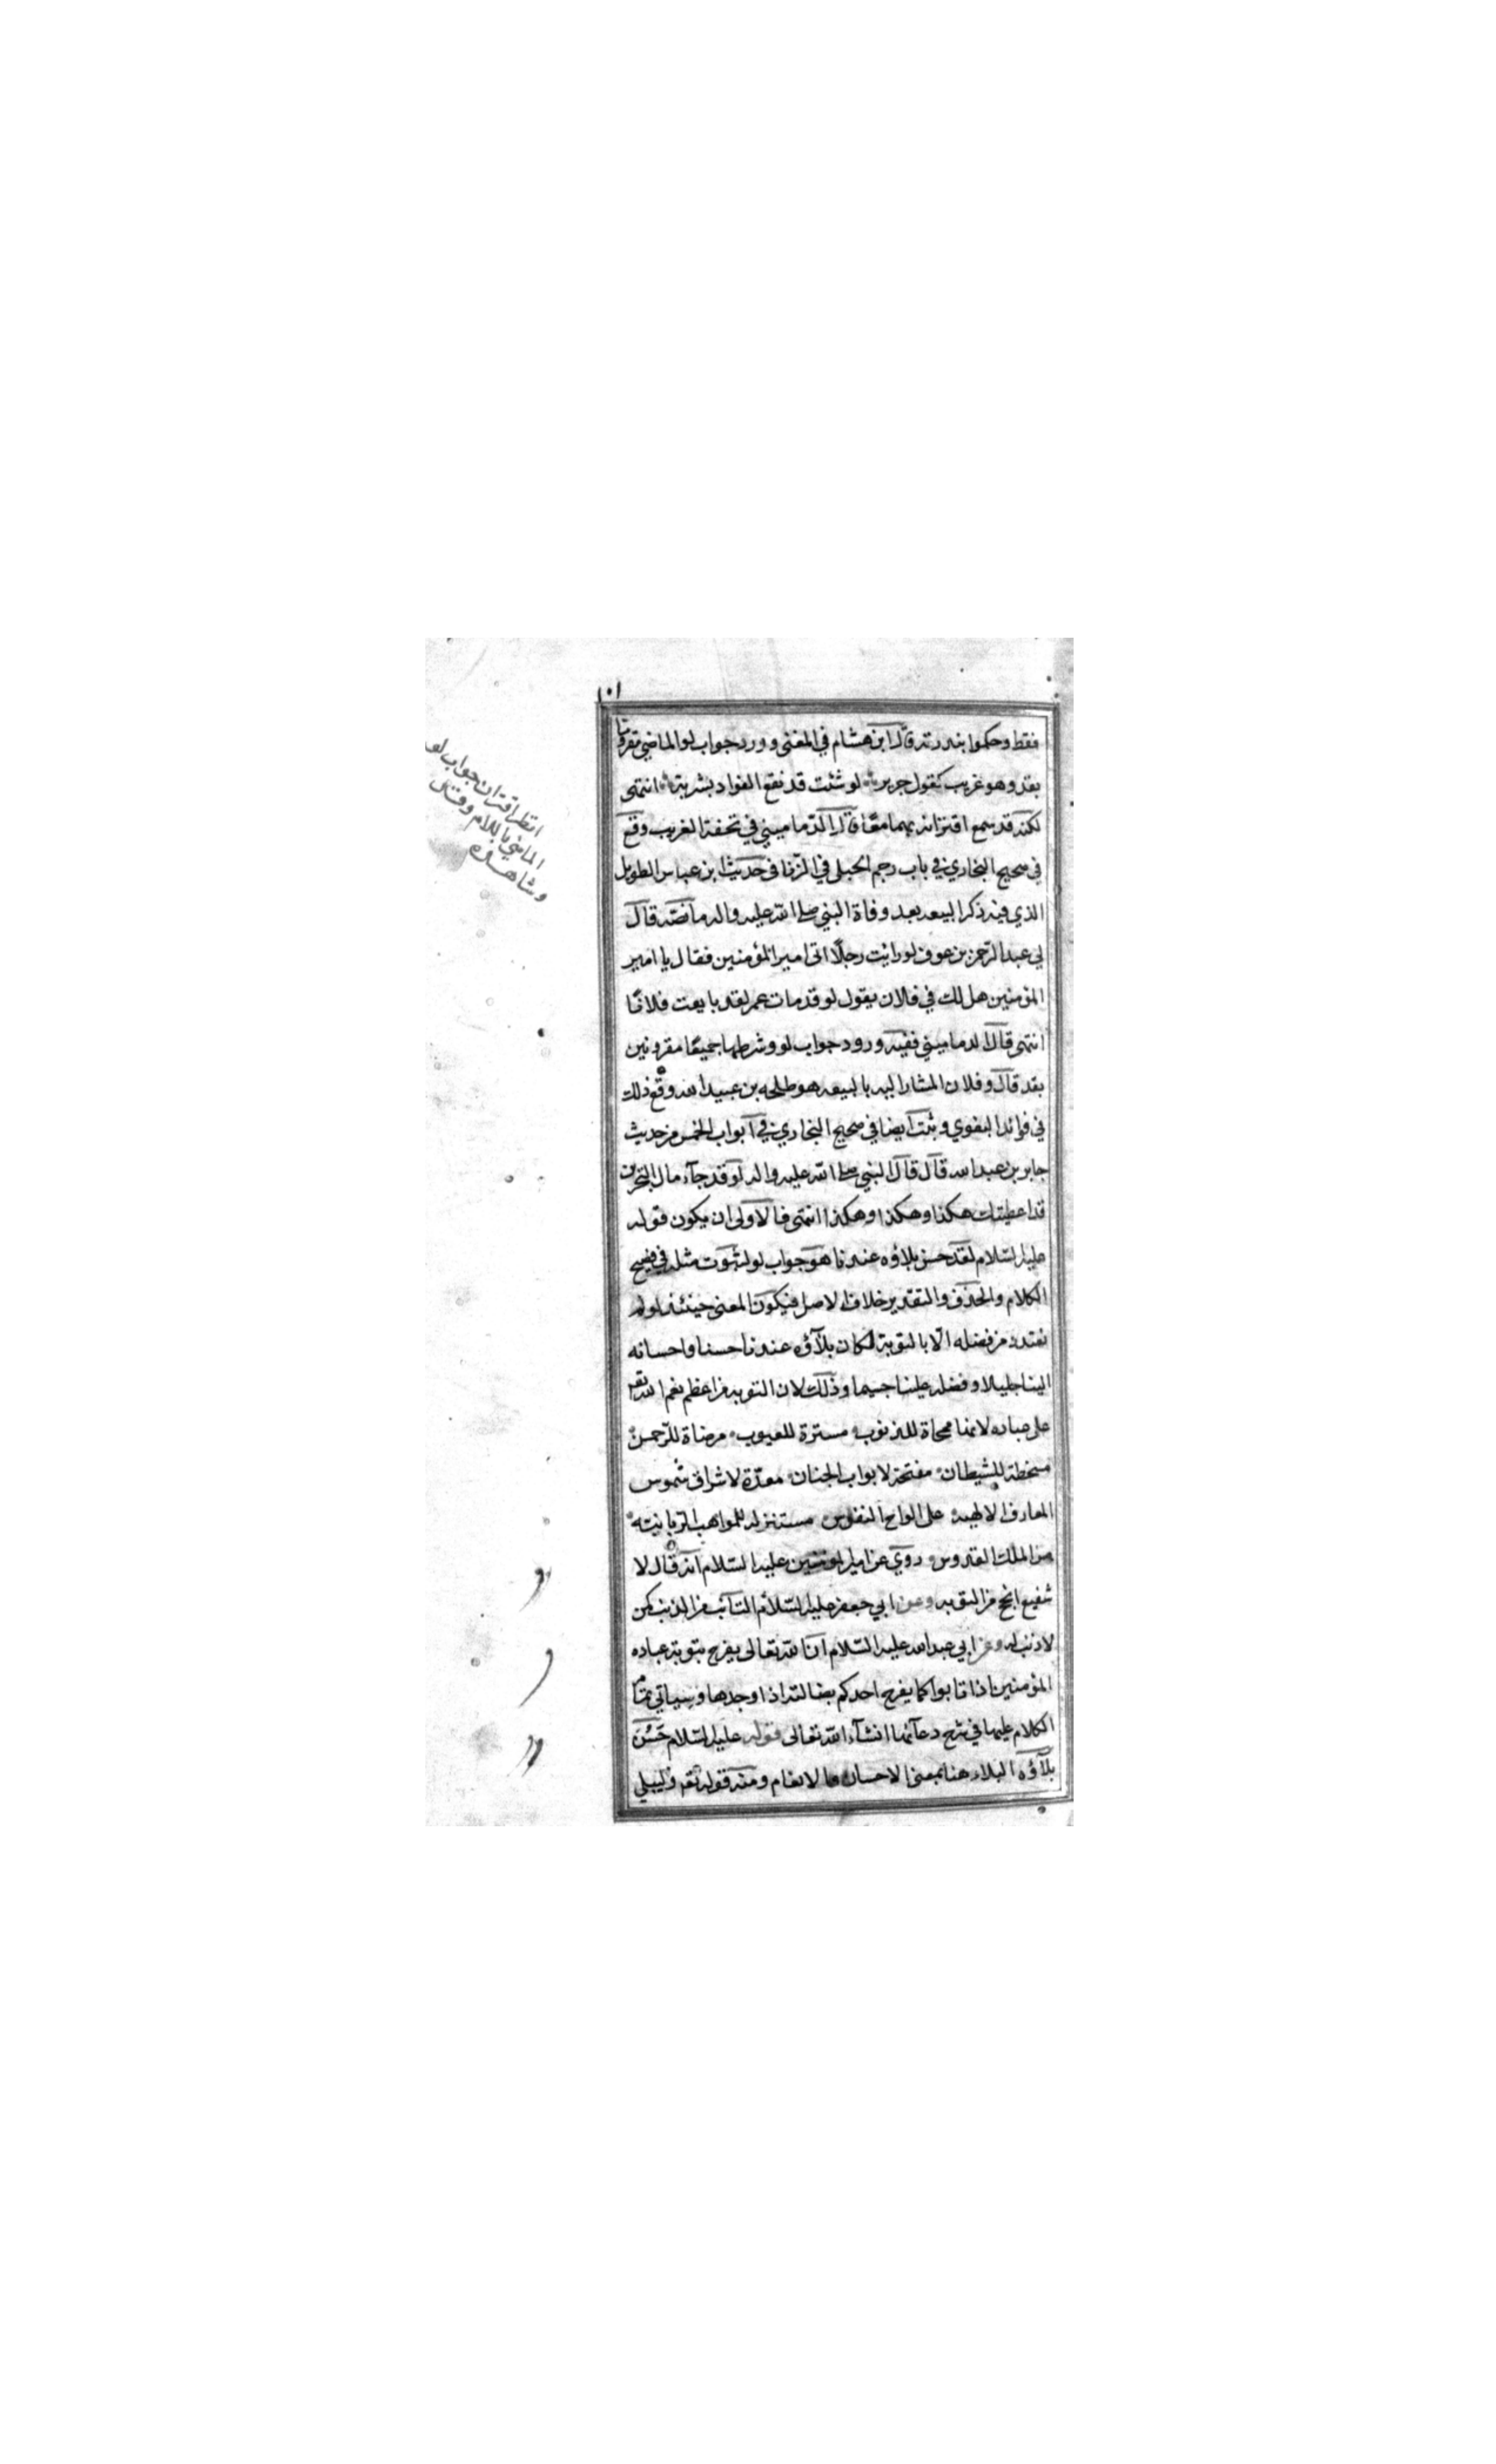 ١٠١
فقط وحكموا بندرته قال ابن هشام في المغنى وورد جواب لو الماضي مقرونا
بقد وهو غريب كقول جرير لو شئت قد نقع الفواد بشربة انتهى
لكنه قد سمع اقترانه بهما معًا قال الدماميني في تحفة الغريب وقع
في صحيح البخاري في باب رجم الحبلى في الزنا في حديث ابن عباس الطويل
الذي فيه ذكر البيعه بعد وفاة النبي صلى الله عليه واله ما نصّه قال
لي عبد الرحمن بن عوف لو رايت رجلًا اتى امير المؤمنين فقال يا امير
المؤمنين هل لك في فلان يقول لو قد مات عمر لقد بايعت فلانًا
انتهى قال الدماميني ففيه ورود جواب لو وشرطها جميعًا مقرونين
بقد قال وفلان المشار اليه بالبيعه هو طلحه بن عبيد الله وقع ذلك
في فوائد البغوي وثبت ايضا في صحيح البخاري في ابواب الخمس من حديث
جابر بن عبد الله قال قال النبي صلى الله عليه واله لو قد جآء مال البحرين
قد اعطيتك هكذا وهكذا وهكذا انتهى فالاولى ان يكون قوله
عليه السّلام لقد حسن بلاؤه عندنا هو جواب لو لثبوت مثله في فصيح
الكلام والحذف والتقدير خلاف الاصل فيكون المعنى حينئذ لو لم
نعتدد من فضله الّا بالتوبة لكان بلآؤه عندنا حسنا واحسانه
الينا جليلا وفضله علينا جسيما وذلك لان التوبه من اعظم نعم الله تعـ
على عباده لانها ممحاة للذنوب مسترة للعيوب مرضاة للرّحمن
مسخطة للشيطان مفتحة لابواب الجنان معدّة لاشراق شموس
المعارف الالهيه على الواح النفوس مستنزله للمواهب الربانيّه
من الملك القدوس روي عن امير المؤمنين عليه السّلام انه قال لا
شفيع انجح من التوبه وعن ابي جعفر عليه السّلام التائب من الذنب كمن
لا ذنب له وعن ابي عبد الله عليه السّلام انّ الله تعالى يفرح بتوبة عباده
المؤمنين اذا تابوا كما يفرح احدكم بضالته اذا وجدها وسياتي تمام
الكلام عليها في شرح دعآئها انشآء الله تعالى قوله عليه السّلام حَسُنَ
بلآؤه البلاء هنا بمعنى الاحسان والانعام ومنه قوله تعـ وليبلي
انظر اقتران جواب لو
الماضي باللام وقد
وشاهده